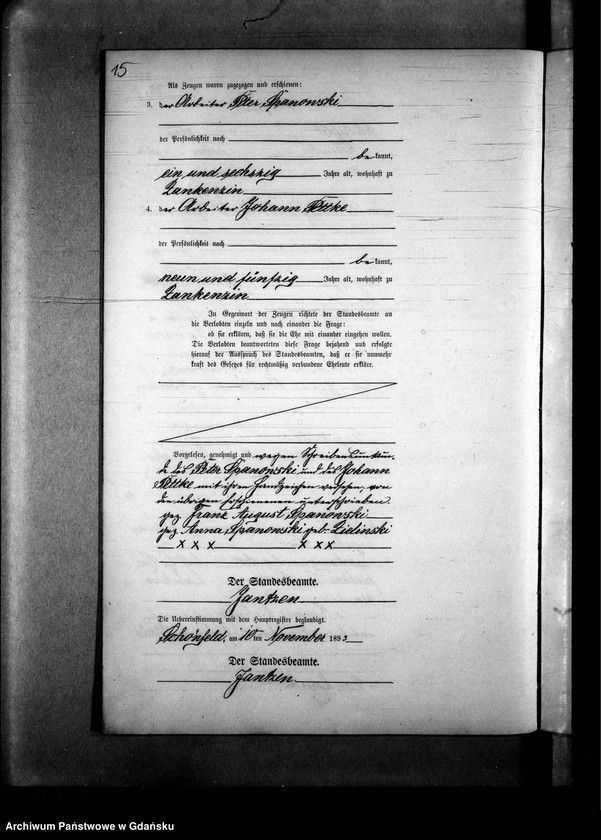 15
Als Zeugen waren zugezogen und erschienen:
3. der Arbeiter Peter Spanowski
der Persönlichkeit nach
bekannt,
ein und sechszig Jahre alt, wohnhaft zu
Zankenzin
4. der Arbeiter Johann Pettke
der Persönlichkeit nach
bekannt,
neun und fünfzig Jahre alt, wohnhaft zu
Zankenzin
In Gegenwart der Zeugen richtete der Standesbeamte an
die Verlobten einzeln und nach einander die Frage:
ob sie erklären, daß sie die Ehe mit einander eingehen wollen.
Die Verlobten beantworteten diese Frage bejahend und erfolgte
hierauf der Ausspruch des Standesbeamten, daß er sie nunmehr
kraft des Gesetzes für rechtmäßig verbundene Eheleute erkläre.
Vorgelesen, genehmigt und wegen Schreibensunkun-
de des Peter Spanowski und des Johann
Pettke mit ihren Handzeichen versehen, von
den übrigen Erschienenen unterschrieben
gez. Franz August Spanowski
gez. Anna Spanowski geb. Zielinski
x x x x x x
Der Standesbeamte.
Jantzen
Die Uebereinstimmung mit dem Hauptregister beglaubigt.
Schönfeld, am 10ten November 1893
Der Standesbeamte.
Jantzen.
Archiwum Państwowe w Gdańsku